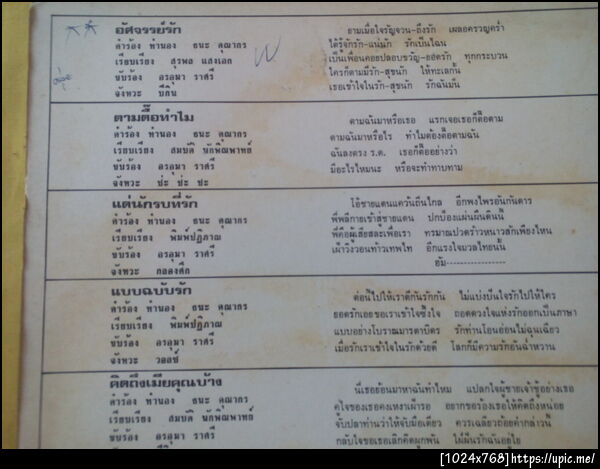 อัศจรรย์รัก
คำร้อง ทำนอง ธนะ คุณากร
เรียบเรียง สุรพล แสงเอก
ขับร้อง อรอุมา ราศรี
จังหวะ บีกิน
ยามเมื่อใจรัญจวน-ถึงรัก เผลอครวญคร่ำ
ได้รู้จักรัก-แน่นัก รักเป็นไฉน
เป็นเพื่อนคอยปลอบขวัญ-ยอดรัก ทุกกระบวน
ใครก็ตามมีรัก-สุขนัก ให้ทะเลกั้น
เธอเข้าใจในรัก-สุขนัก รักฉันมั่น
ตามตื๊อทำไม
คำร้อง ทำนอง ธนะ คุณากร
เรียบเรียง สมบัติ นักพิณพาทย์
ขับร้อง อรอุมา ราศรี
จังหวะ ชะ ชะ ชะ
ตามฉันมาหรือเธอ แรกเจอเธอก็ตื๊อตาม
ตามฉันมาหรือไร ทำไมต้องตื๊อตามฉัน
ฉันลงตรง ร.ด. เธอก็ตื๊ออย่างว่า
มีอะไรไหมนะ หรือจะทำทาบทาม
แด่นักรบที่รัก
คำร้อง ทำนอง ธนะ คุณากร
เรียบเรียง พิมพ์ปฏิภาณ
ขับร้อง อรอุมา ราศรี
จังหวะ กลองศึก
โอ้ชายแดนแคว้นถิ่นไกล อีกพงไพรอันกันดาร
พี่พลีกายเข้าสู้ชายแดน ปกป้องแผ่นผืนดินนี้
พี่คือผู้เสียสละเพื่อเรา ทรมาณปวดร้าวหนาวสักเพียงไหน
เฝ้าวิงวอนท้าวเทพไท อีกแรงใจมวลไทยนั้น
ฮัม----------------
แบบฉบับรัก
คำร้อง ทำนอง ธนะ คุณากร
เรียบเรียง พิมพ์ปฏิภาณ
ขับร้อง อรอุมา ราศรี
จังหวะ วอลซ์
ต่อนี้ไปให้เราดีกันรักกัน ไม่แบ่งปันใจรักไปให้ใคร
ยอดรักเอยขอเราเข้าใจซึ้งใจ ถอดดวงใจแห่งรักออกเป็นภาษา
แบบอย่างโบราณมารดาบิดร รักท่านโอนอ่อนไม่ฉุนเฉียว
เมื่อรักเราเข้าใจในรักด้วยดี โลกก็มีความรักอันฉ่ำหวาน
คิดถึงเมียคุณบ้าง
คำร้อง ทำนอง ธนะ คุณากร
เรียบเรียง สมบัติ นักพิณพาทย์
ขับร้อง อรอุมา ราศรี
นี่เธอย้อนมาหาฉันทำไหม แปลกใจผู้ชายเจ้าชู้อย่างเธอ
คู่ใจของเธอคงเหงาเฝ้ารอ อยากขอร้องเธอให้คิดถึงหน่อย
จับปลาท่านว่าให้จับมือเดียว ควรเฉลียวถ้อยคำกล่าวนี้
กลับใจขอเธอเลิกคิดผูกพัน
[1024x768]https://upic.me/